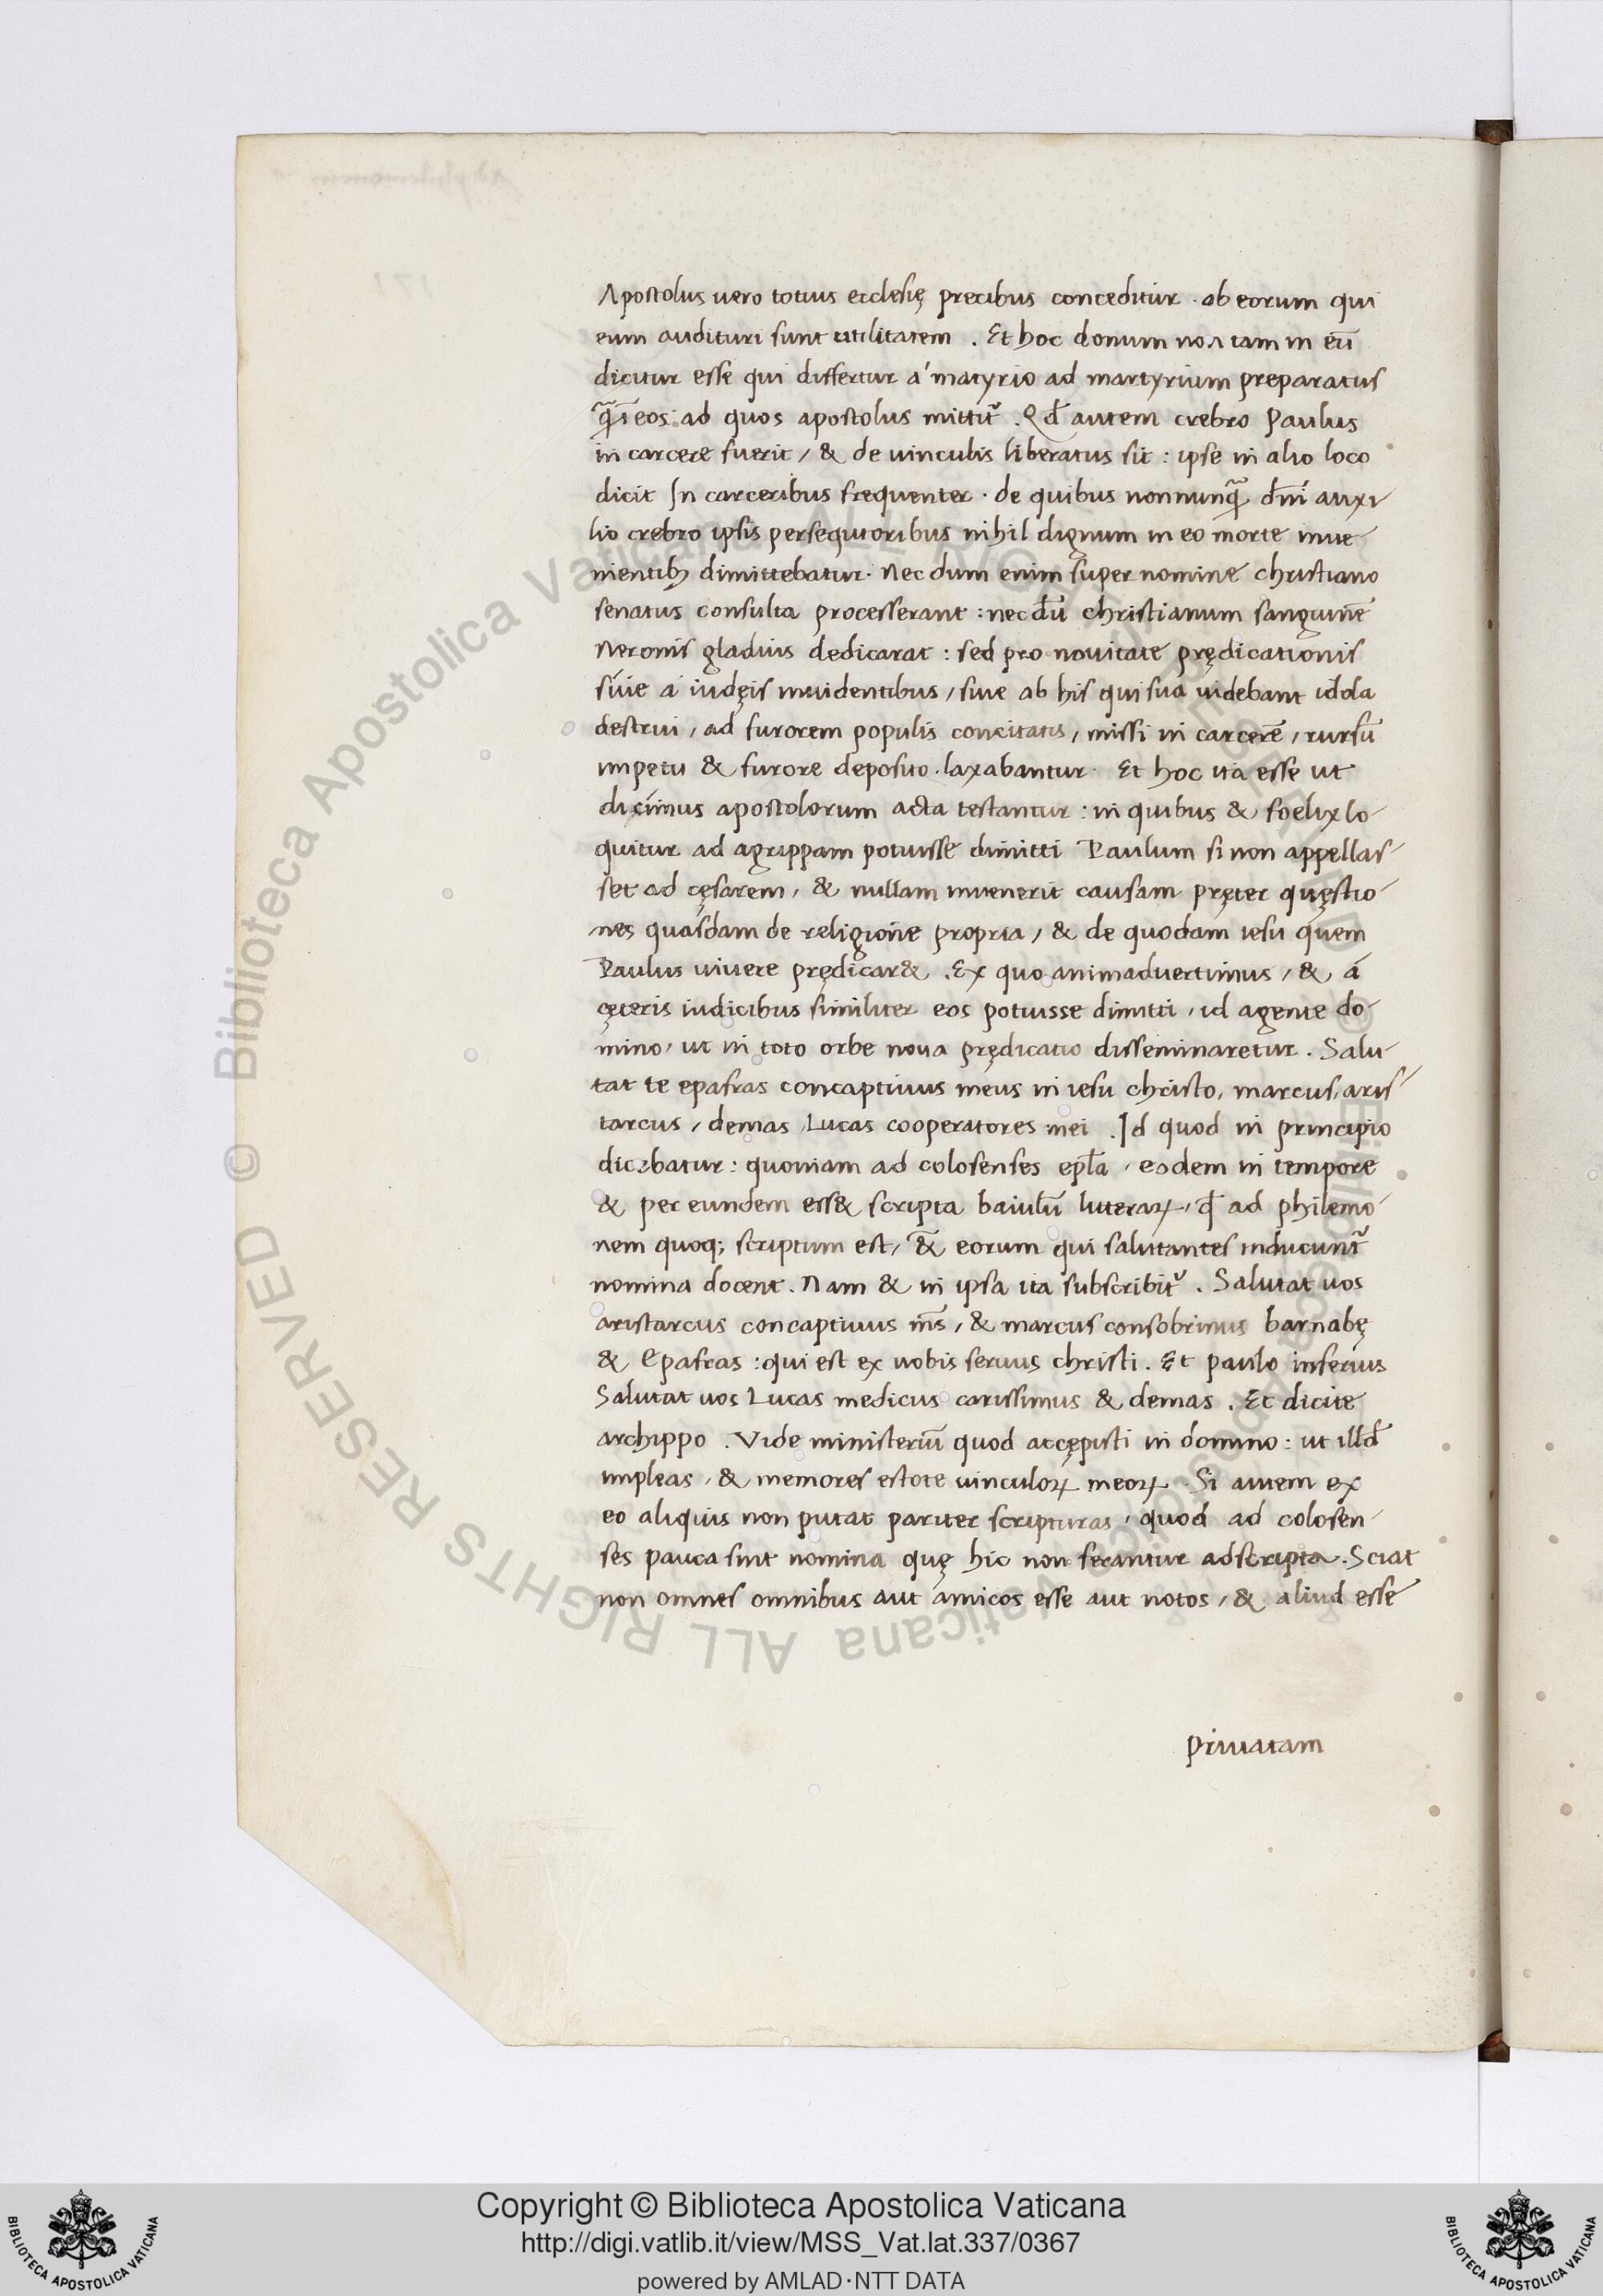 Apostolus uero totius ecclesię precibus conceditur · ab eorum qui
eum audituri sunt utilitatem . Et hoc donum non tam in eū
dicitur esse qui differtur á matyrio ad martyrium preparatus
q̄ȷ̄ eos : ad quos apostolus mittit᷑ . Qđ autem crebro Paulus
in carcere fuerit / & de uinculis liberatus sit : ipse in alio loco
dicit In carceribus frequenter · de quibus nonnunq̄ dn̄i auxi
lio crebro ipsis persequtoribus nihil dignum in eo morte inue
nientibꝫ dimittebatur . Nec dum enim super nomine christiano
senatus consulta processerant : nec dū christianum sanguinē
Neronis gladius dedicarat : sed pro nouitate prędicationis
siue a iudęis inuidentibus / siue ab his qui sua uidebant idola
destrui / ad furorem populis concitatis / missi in carcerē / rursū
impetu & furore deposito . laxabantur . Et hoc ita esse ut
dicimus apostolorum acta testantur : in quibus & foelix lo-
quitur ad agrippam potuisse dimitti Paulum si non appellas-
set ad cęsarem / & nullam inuenerit causam pręter quęstio-
nes quasdam de religione propria / & de quodam iesu quem
Paulus uiuere prędicar& . Ex quo animaduertimus / & á
cęteris iudicibus similiter eos potuisse dimitti / id agente do-
mino / ut in toto orbe noua prędicatio disseminaretur . Salu-
tat te epafras concaptiuus meus in iesu christo , marcus / aris-
tarcus / demas Lucas cooperatores mei . Id quod in principio
dicebatur : quoniam ad colosenses ep̄la / eodem in tempore
& per eundem ess& scripta baiulū litterarꝝ / qđ ad philemo-
nem quoq; scriptum est / & eorum qui salutantes inducunt᷑
nomina docent . Nam & in ipsa ita subscribit᷑ . Salutat uos
aristarcus concaptiuus m̄s / & marcus consobrinus barnabę
& Epafras : qui est ex uobis seruus christi . Et paulo inferius
Salutat uos Lucas medicus carissimus & demas . Et dicite
archippo . Vide ministeriū quod accępisti in domino : ut illđ
impleas / & memores estote uinculoꝝ meoꝝ . Si autem ex
eo aliquis non putat pariter scripturas / quod ad colosen-
ses pauca sint nomina quę hic non ferantur adscripta . Sciat
non omnes omnibus aut amicos esse aut notos / & aliud esse
priuatam
© Biblioteca Apostolica Vaticana ALL RIGHTS RESERVED © Biblioteca Apostolica Vaticana ALL RIGHTS RESERVED
Copyright © Biblioteca Apostolica Vaticana
http://digi.vatlib.it/view/MSS_Vat.lat.337/0367
powered by AMLAD·NTT DATA
BIBLIOTECA APOSTOLICA VATICANA
BIBLIOTECA APOSTOLICA VATICANA